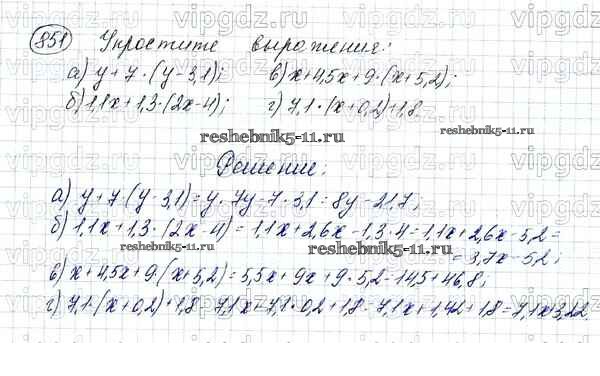 851 Упростите выражения:
а) y+7·(y-3,1); в) x+4,5x+9·(x+5,2);
б) 1,1x+1,3·(2x-4); г) 7,1·(x+0,2)+1,8.
reshebnik5-11.ru
reshebnik5-11.ru
Решение:
а) y+7·(y-3,1)=y+7y-7·3,1=8y-21,7;
б) 1,1x+1,3·(2x-4)=1,1x+2,6x-1,3·4=1,1x+2,6x-5,2=
=3,7x-5,2;
reshebnik5-11.ru
reshebnik5-11.ru
в) x+4,5x+9·(x+5,2)=5,5x+9x+9·5,2=14,5+46,8;
г) 7,1·(x+0,2)+1,8=7,1x+7,1·0,2+1,8=7,1x+1,42+1,8=7,1x+3,22.